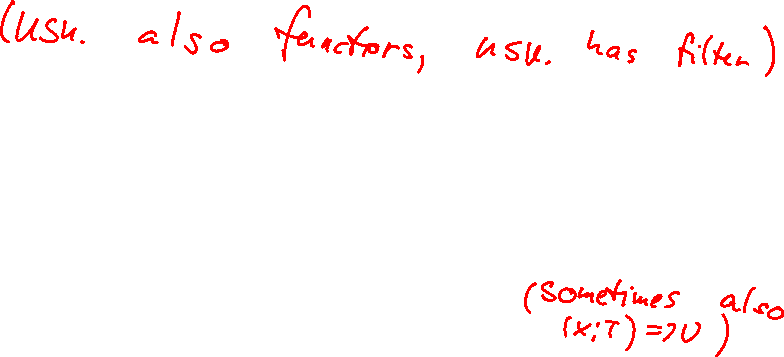 (usu. also functors, usu. has filter)
(sometimes also
(x:T) => U )